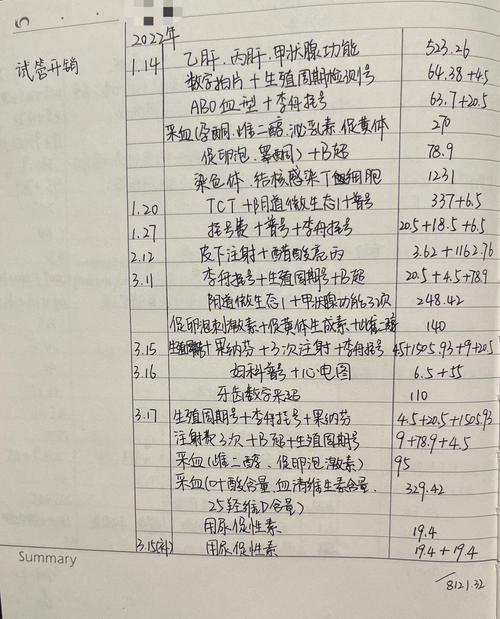 2022年
试管开销
1.14 乙肝、丙肝、甲状腺功能 523.26
数字拍片+生殖周期检测号 64.38+4.5
ABO血型+李舟挂号 63.7+20.5
采血(孕酮、雌二醇、泌乳素、促黄体 270
促卵泡、睾酮)+B超 78.9
染色体、结核感染T细胞 1231
1.20 TCT+阴道微生态1+普号 337+6.5
1.27 挂号费+普号+李舟挂号 20.5+18.5+6.5
2.12 皮下注射+醋酸亮丙 3.62+1162.76
3.11 李舟挂号+生殖周期号+B超 20.5+4.5+78.9
阴道微生态1+甲状腺功能3次 248.42
促卵泡刺激素+促黄体生成素+雌二醇 140
3.15 生殖周期+果纳芬+3次注射+李舟挂号 4.5+1505.93+9+20.5
3.16 妇科普号+心电图 6.5+
牙齿数字采码 110
3.17 生殖周期号+李舟挂号+果纳芬 4.5+20.5+1505.93
注射费3次+B超+生殖周期号 9+78.9+4.5
采血(雌二醇、促卵泡激素) 95
采血(叶酸含量、血清维生素含量、 329.42
25羟维D含量)
用尿促性素 19.4
3.15(补) 用尿促性素 19.4+19.4
Summary
8121.32